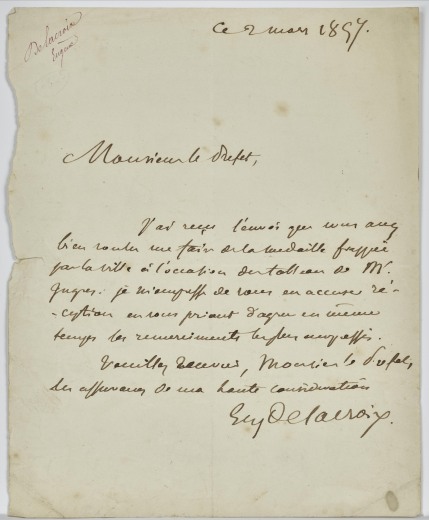 Delacroix
Eugène
Ce 2 mars 1857.
Monsieur le Préfet,
J'ai reçu l'envoi que vous avez
bien voulu me faire de la médaille frappée
par la ville à l'occasion du tableau de Mr.
Ingres. je m'empresse de vous en accuser ré-
-ception en vous priant d'agréer en même
temps les remerciments les plus empressés.
Veuillez recevoir, Monsieur le Préfet,
les assurances de ma haute considération
Eug Delacroix.